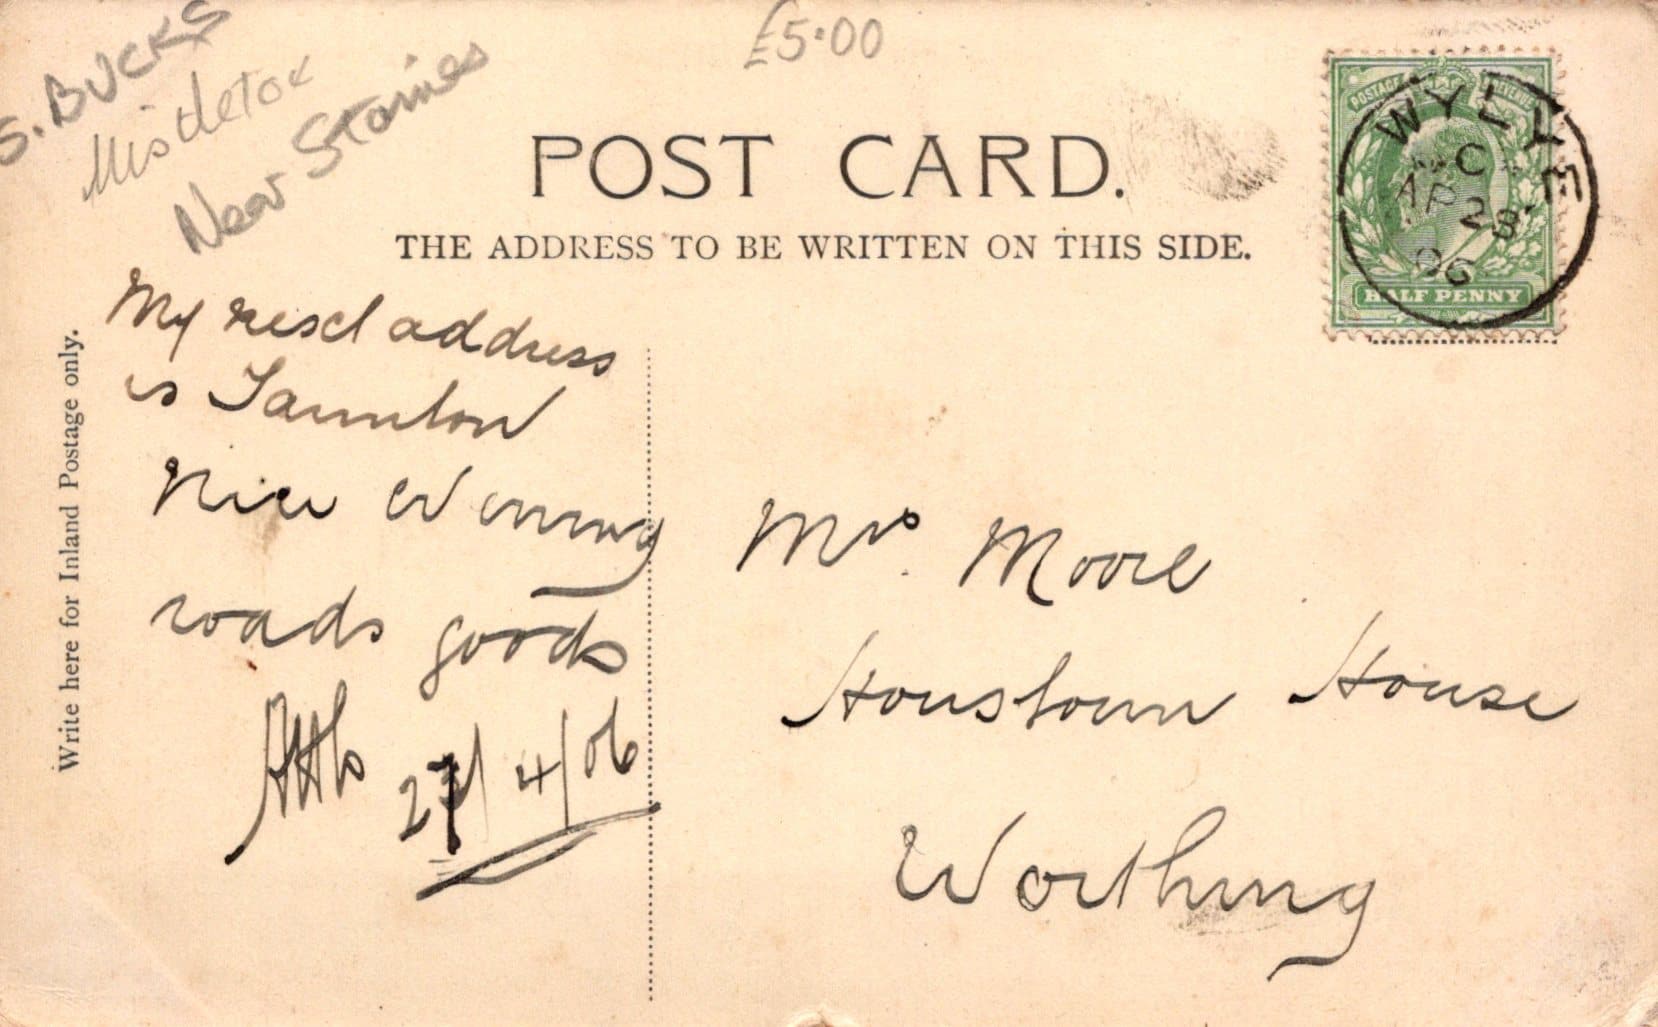 £5.00
S. BUCKS
Mistletoe
Near Staines
POST CARD.
THE ADDRESS TO BE WRITTEN ON THIS SIDE.
POSTAGE REVENUE
HALF PENNY
WYLYE
C
AP 28
06
Write here for Inland Postage only.
My next address
is Taunton
Nice evening
roads goods
27/4/06
Mrs. Moore
House
Worthing